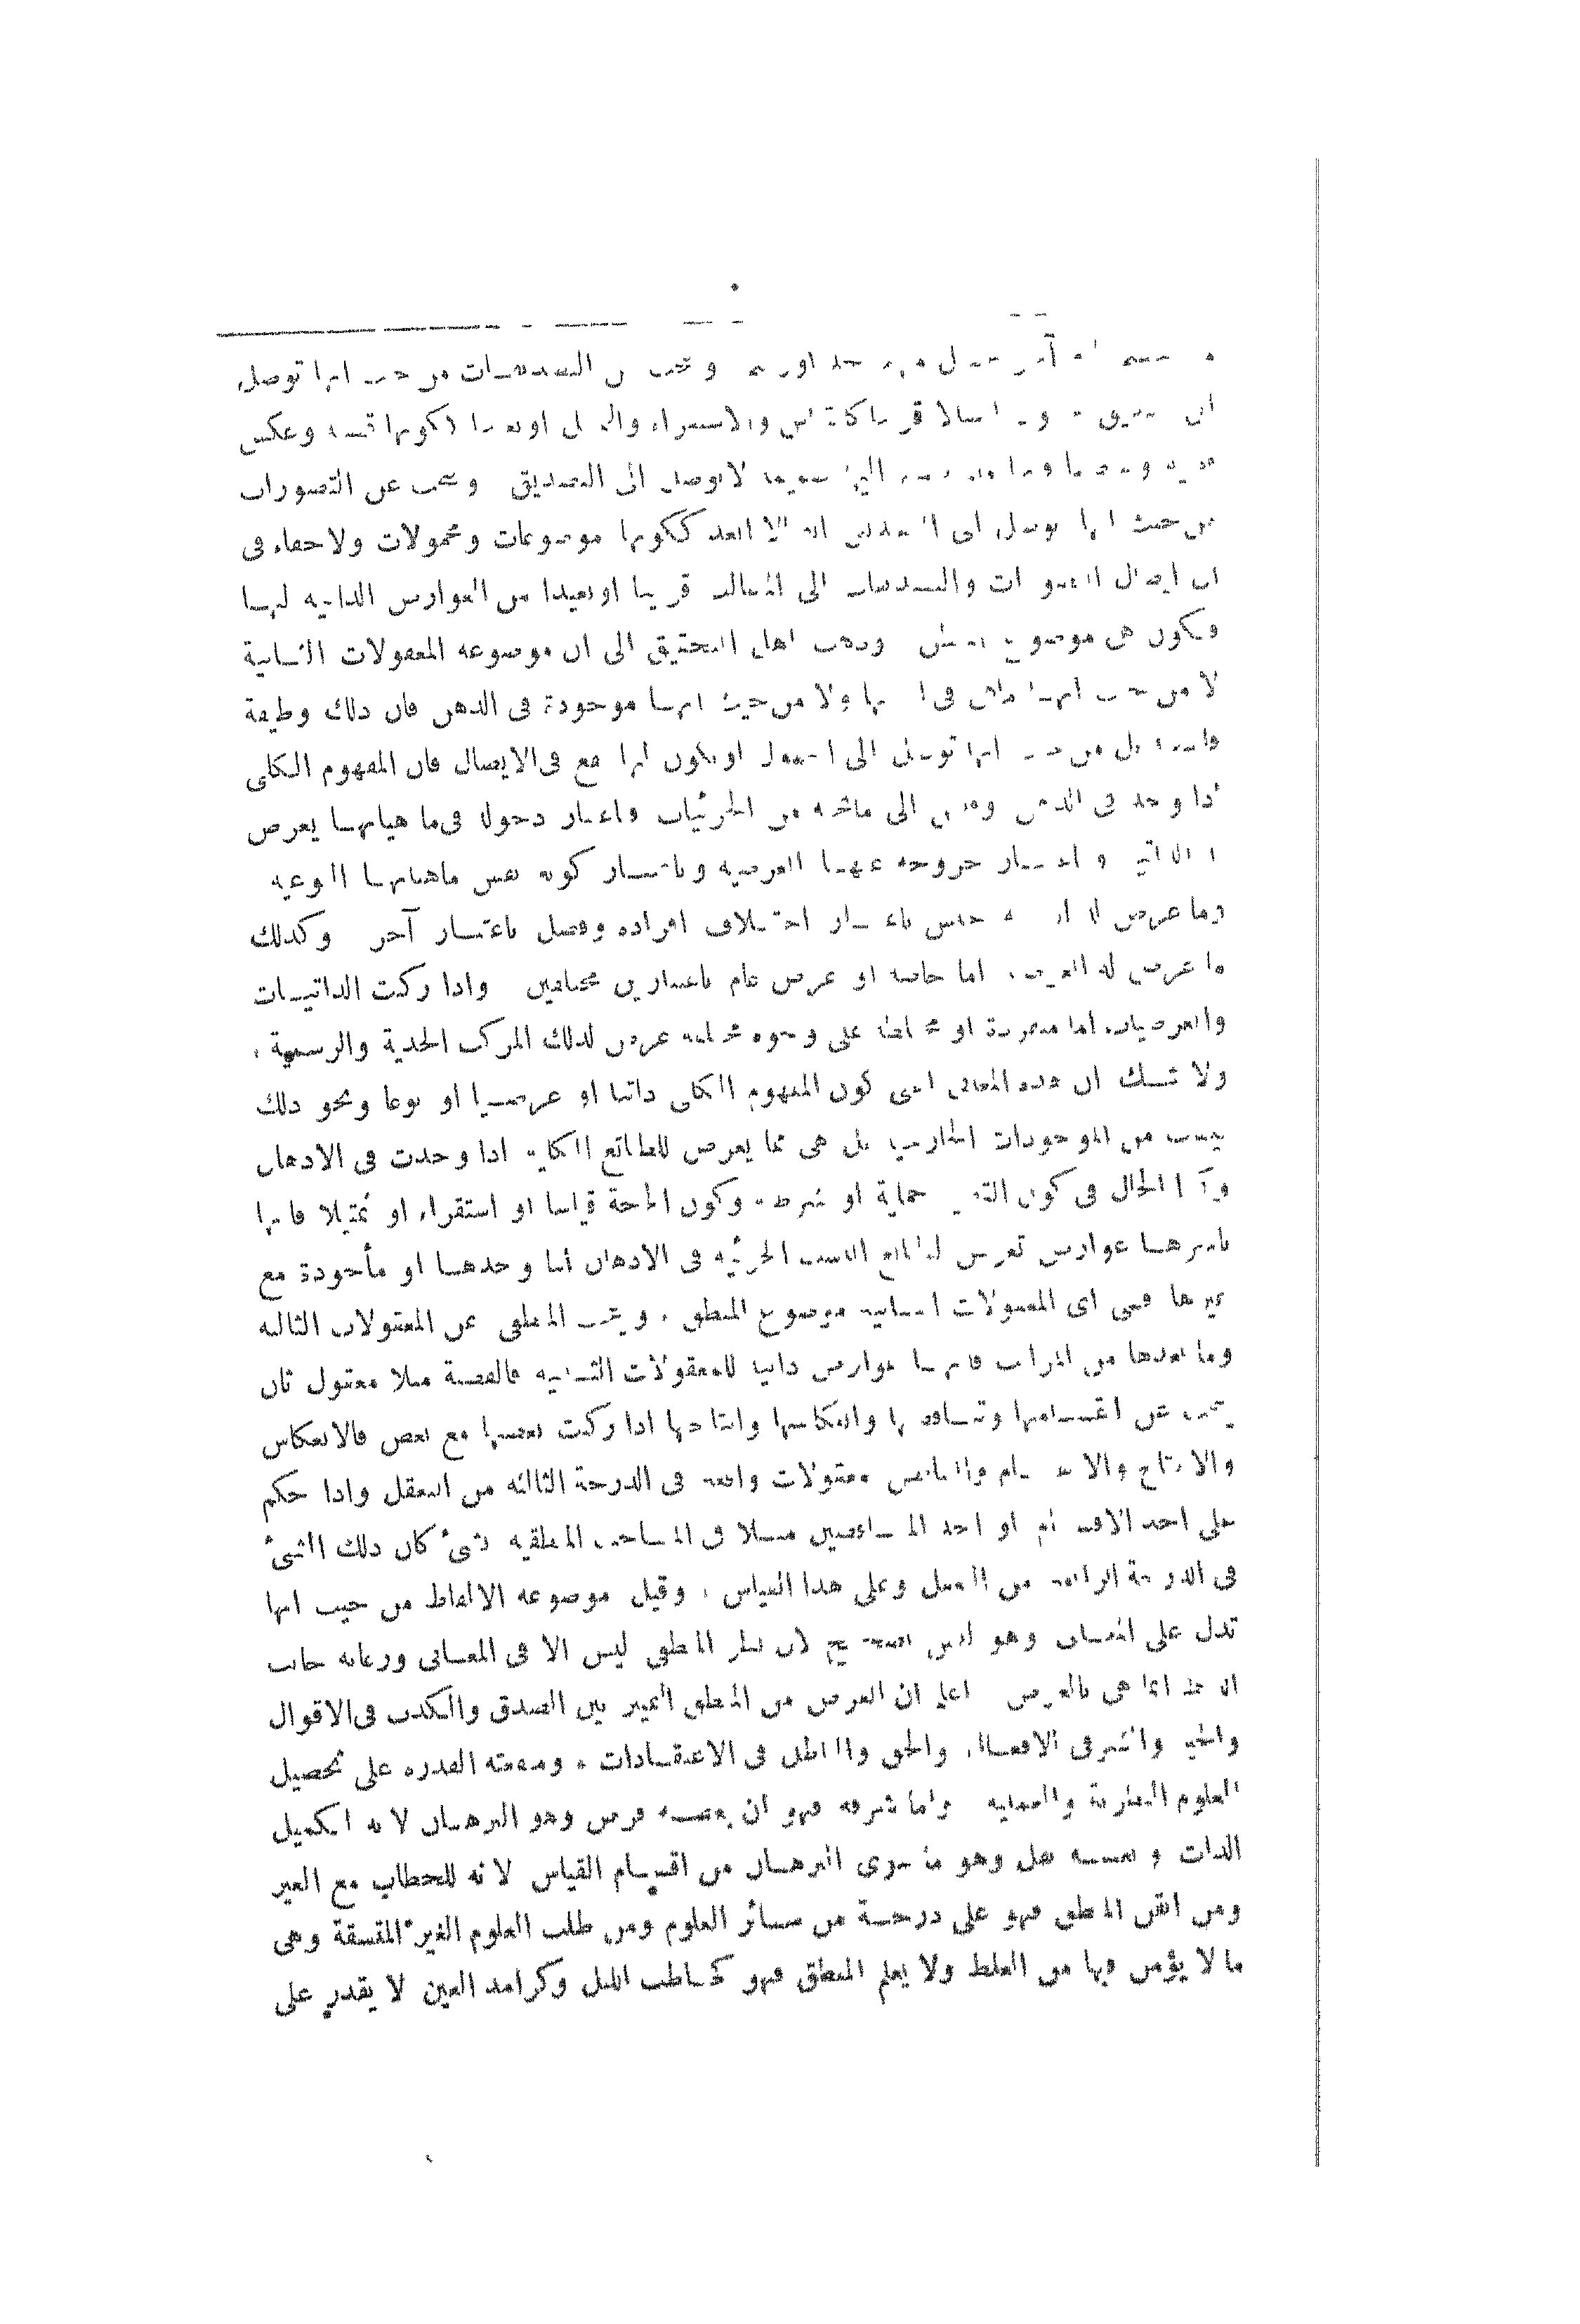 التصديقات من حيث انها توصل
والاستقراء وعكس
لا توصل الى التصديق وبحث عن التصورات
من حيث انها توصل الى موضوعات ومحمولات ولا خفاء فى
ان ايصال التصورات والتصديقات الى المطالب قريبا او بعيدا من العوارض الذاتية لهما
فتكون هى موضوع المنطق وذهب اهل التحقيق الى ان موضوعه المعقولات الثانية
لا من حيث انها ولا من حيث انها موجودة فى الذهن فان ذلك وظيفة
بل من حيث انها توصل الى المجهول او يكون لها نفع فى الايصال فان المفهوم الكلى
اذا وجد فى الذهن وقيس الى ما تحته من الجزئيات فباعتبار دخوله فى ماهياتها يعرض
الذاتية وباعتبار خروجه عنها العرضية وباعتبار كونه نفس ماهياتها النوعية
وما عرض له جنس باعتبار اختلاف افراده وفصل باعتبار آخر وكذلك
ما عرض له العرضية اما خاصة او عرض عام باعتبارين مختلفين واذا ركبت الذاتيات
والعرضيات اما منفردة او مختلطة على وجوه مختلفة عرض لذلك المركب الحدية والرسمية .
ولا شك ان هذه المعانى اعنى كون المفهوم الكلى ذاتيا او عرضيا او نوعا ونحو ذلك
ليست من الموجودات الخارجية بل هى مما يعرض للطبائع الكلية اذا وجدت فى الاذهان
وكذا الحال فى كون القضية حملية او شرطية وكون الحجة قياسا او استقراء او تمثيلا فانها
باسرها عوارض تعرض لطبائع النسب الجزئية فى الاذهان اما وحدها او مأخوذة مع
غيرها فهى اى المعقولات الثانية موضوع المنطق . ويبحث المنطقى عن المعقولات الثالثة
وما بعدها من المراتب فانها عوارض ذاتية للمعقولات الثانية فالقضية مثلا معقول ثان
يبحث عن اقسامها وتناقضها وانعكاسها وانتاجها اذا ركبت بعضها مع بعض فالانعكاس
والانتاج والانقسام والتناقض معقولات واقعة فى الدرجة الثالثة من التعقل واذا حكم
على احد الاقسام او احد المتناقضين مثلا فى المباحث المنطقية بشئ كان ذلك الشئ
فى الدرجة الرابعة من التعقل وعلى هذا القياس . وقيل موضوعه الالفاظ من حيث انها
تدل على المعانى وهو ليس بصحيح لان نظر المنطقى ليس الا فى المعانى ورعاية جانب
اللفظ انما هى بالعرض اعلم ان الغرض من المنطق التمييز بين الصدق والكذب فى الاقوال
والخير والشر فى الافعال والحق والباطل فى الاعتقادات . ومنفعته القدرة على تحصيل
العلوم النظرية والعملية واما شرفه فهو ان بعضه فرض وهو البرهان لانه لتكميل
الذات وبعضه نفل وهو ما سوى البرهان من اقسام القياس لانه للخطاب مع الغير
ومن اتقن المنطق فهو على درجة من سائر العلوم ومن طلب العلوم الغير المتسقة وهى
ما لا يؤمن فيها من الغلط ولا يعلم المنطق فهو كحاطب الليل وكرامد العين لا يقدر على